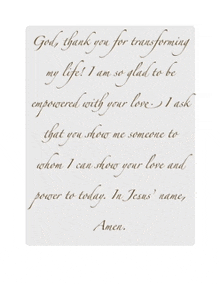 God, thank you for transforming
my life! I am so glad to be
empowered with your love. I ask
that you show me someone to
whom I can show your love and
power to today. In Jesus' name,
Amen.